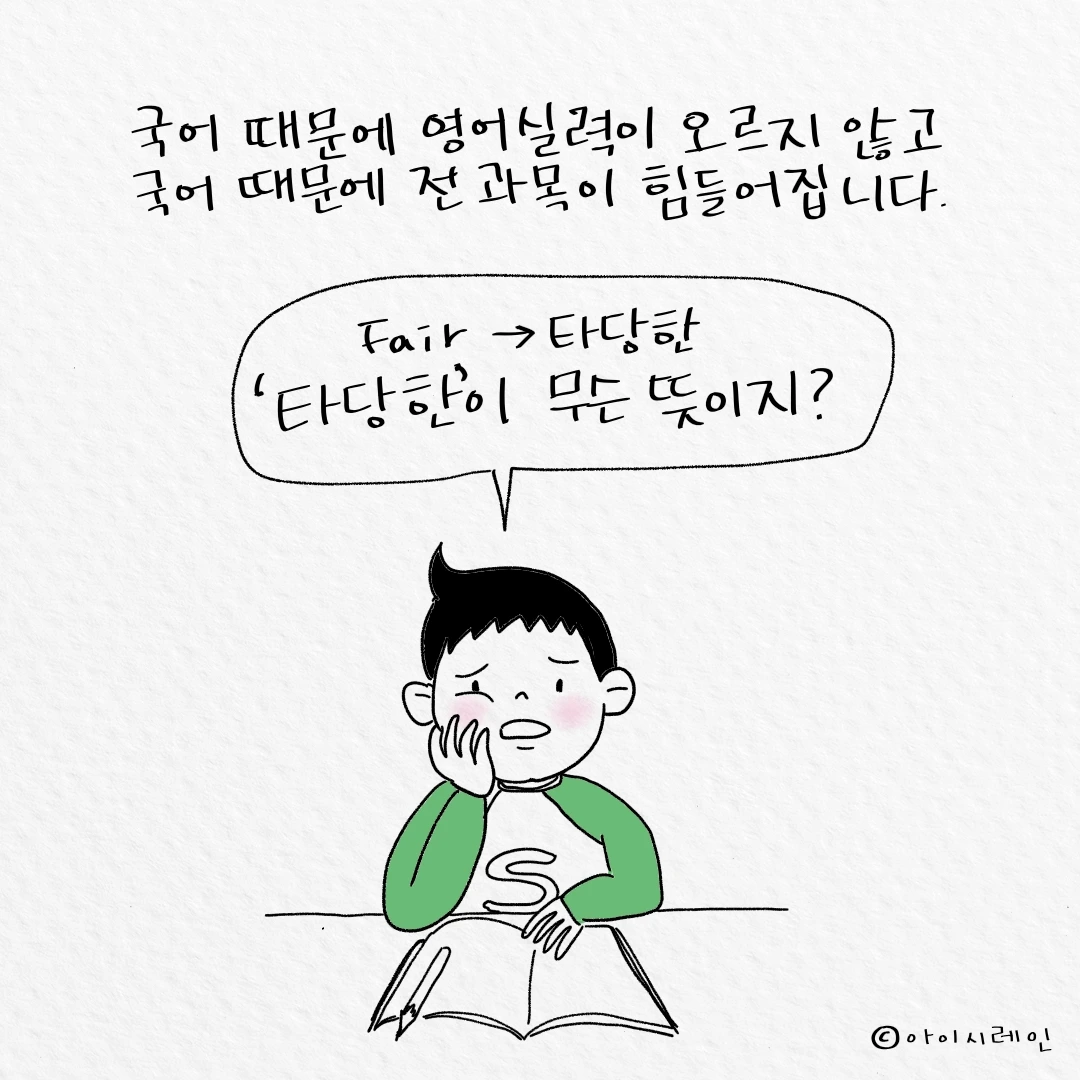 국어 때문에 영어실력이 오르지 않고
국어 때문에 전 과목이 힘들어집니다.
Fair → 타당한
'타당한'이 무슨 뜻이지?
S
©아이시레인